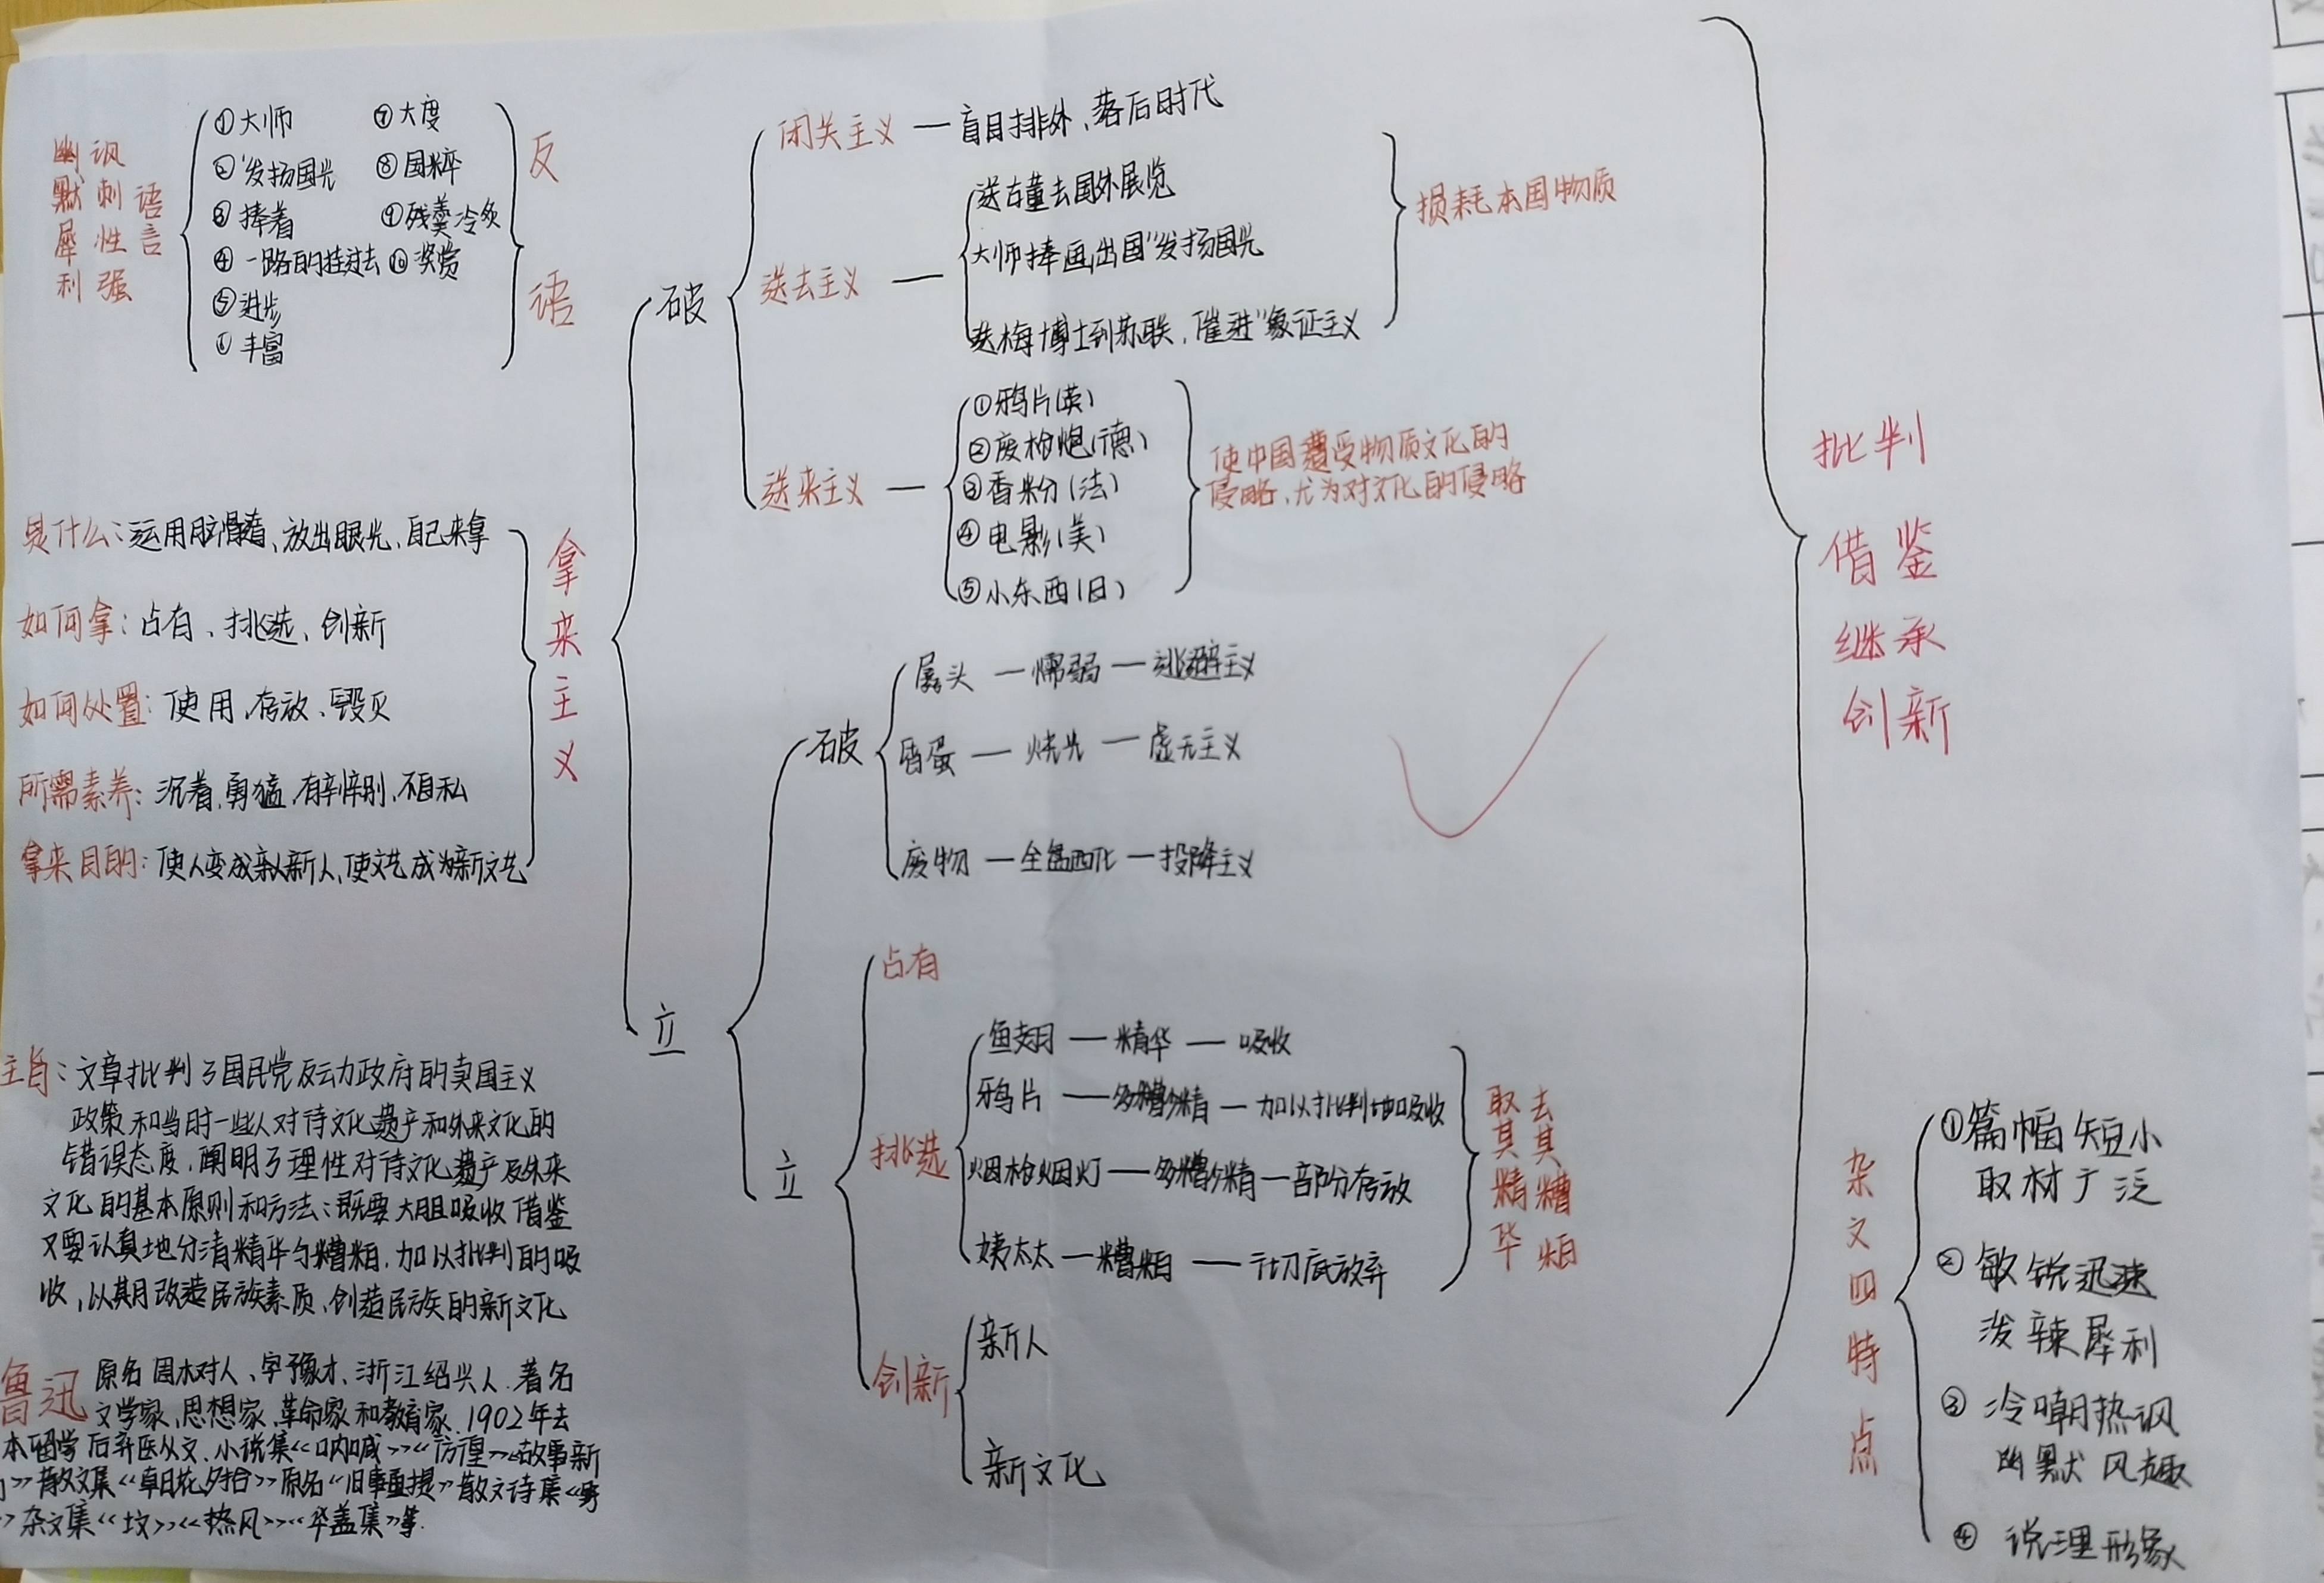 幽默犀利
讽刺性强
语言
①大师
②"发扬国光
③捧着
④一路的挂过去
⑤进步
⑥丰富
⑦大度
⑧国粹
⑨残羹冷炙
⑩奖赏
反语
是什么:运用脑髓,放出眼光,自己来拿
如何拿:占有、挑选、创新
如何处置:使用、存放、毁灭
所需素养:沉着,勇猛,有辨别,不自私
拿来目的:使人变成新人,使文艺成为新文艺
拿来主义
破
闭关主义—盲目排外、落后时代
送去主义—
送古董去国外展览
大师捧画出国"发扬国光
送梅博士到苏联,催进"象征主义
损耗本国物质
送来主义—
①鸦片(英)
②废枪炮(德)
③香粉(法)
④电影(美)
⑤小东西(日)
使中国遭受物质文化的
侵略,尤为对文化的侵略
立
破
孱头—懦弱—逃避主义
昏蛋—烧光—虚无主义
废物—全盘西化—投降主义
立
占有
挑选
鱼翅—精华—吸收
鸦片—多糟少精—加以批判地吸收
烟枪烟灯—多糟少精—部分存放
姨太太—糟粕—彻底放弃
取其精华
去其糟粕
创新
新人
新文化
批判
借鉴
继承
创新
主旨:文章批判了国民党反动政府的卖国主义
政策和当时一些人对待文化遗产和外来文化的
错误态度,阐明了理性对待文化遗产及外来
文化的基本原则和方法:既要大胆吸收借鉴
又要认真地分清精华与糟粕,加以批判的吸
收,以期改造民族素质、创造民族的新文化
鲁迅 原名周树人、字豫才、浙江绍兴人.著名
文学家、思想家、革命家和教育家.1902年去
本留学后弃医从文.小说集《呐喊》《彷徨》《故事新
》散文集《朝花夕拾》原名《旧事重提》散文诗集《野
》杂文集《坟》《热风》《华盖集》等.
杂文四特点
①篇幅短小
取材广泛
②敏锐迅速
泼辣犀利
③冷嘲热讽
幽默风趣
④说理形象